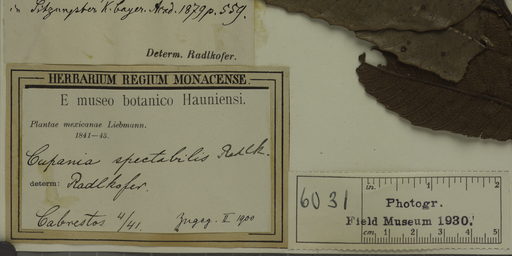 in Sitzungsber. K. bayer. Akad. 1879 p. 559.
Determ. Radlkofer.
HERBARIUM REGIUM MONACENSE.
E museo botanico Hauniensi.
Plantae mexicanae Liebmann.
1841—43.
Cupania spectabilis Radlk.
determ: Radlkofer.
Cabrestos 4/41. Zugeg. II 1900
6031
in. 1 2
Photogr.
Field Museum 1930.
cm. 1 2 3 4 5